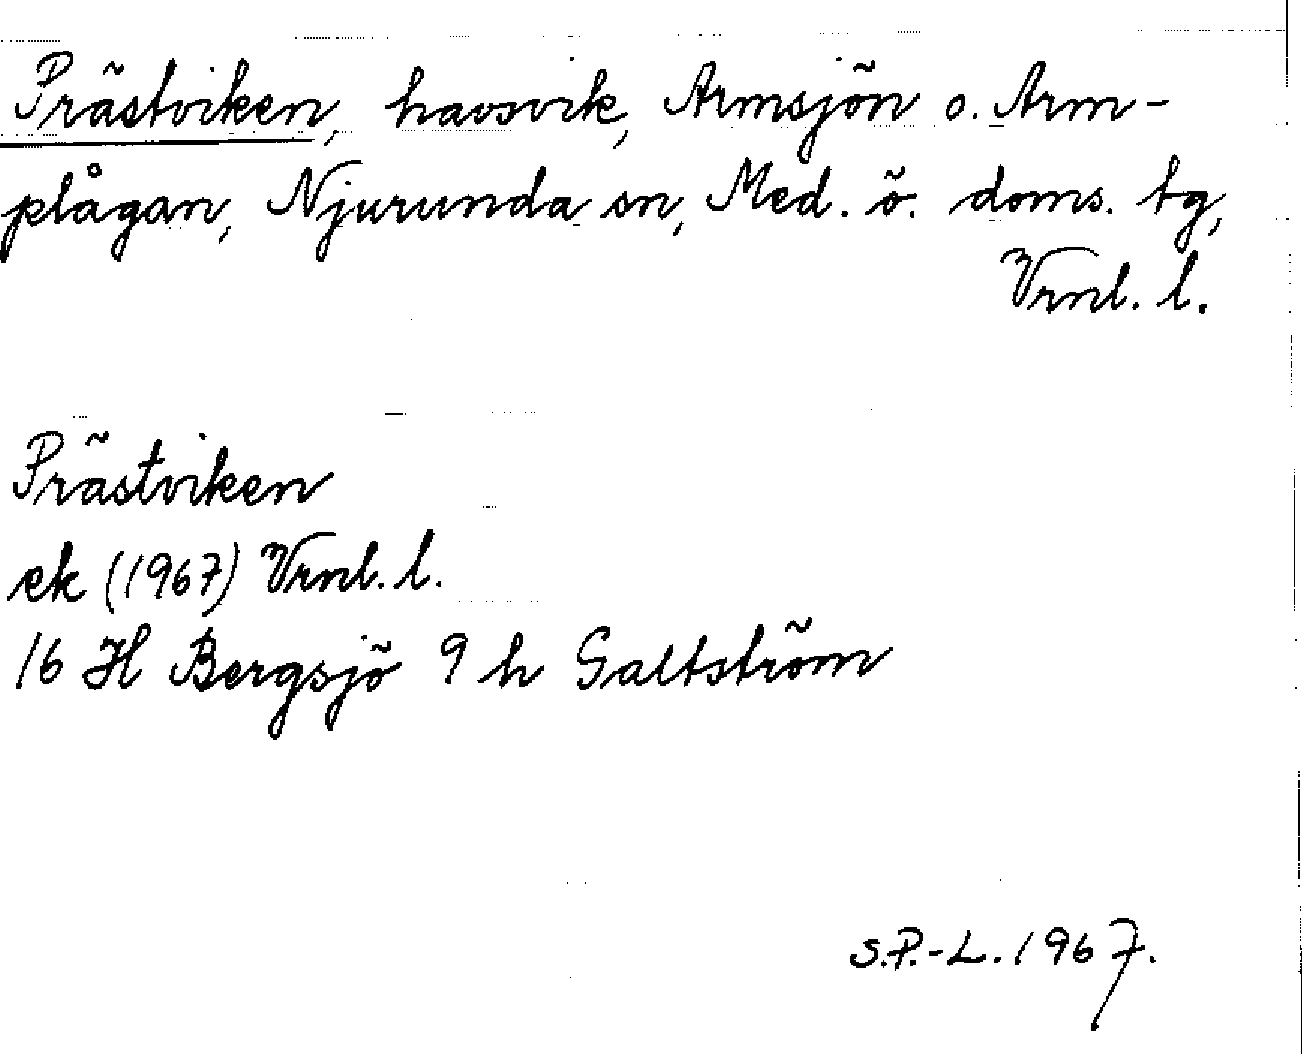 Prästviken, havsvik, Armsjön o. Arm-
plågan, Njurunda sn, Med. ö. doms. tg,
Vrnl. l.
Prästviken
ek (1967) Vrnl. l.
16 H Bergsjö 9 h Galtström
S.P.-L. 1967.